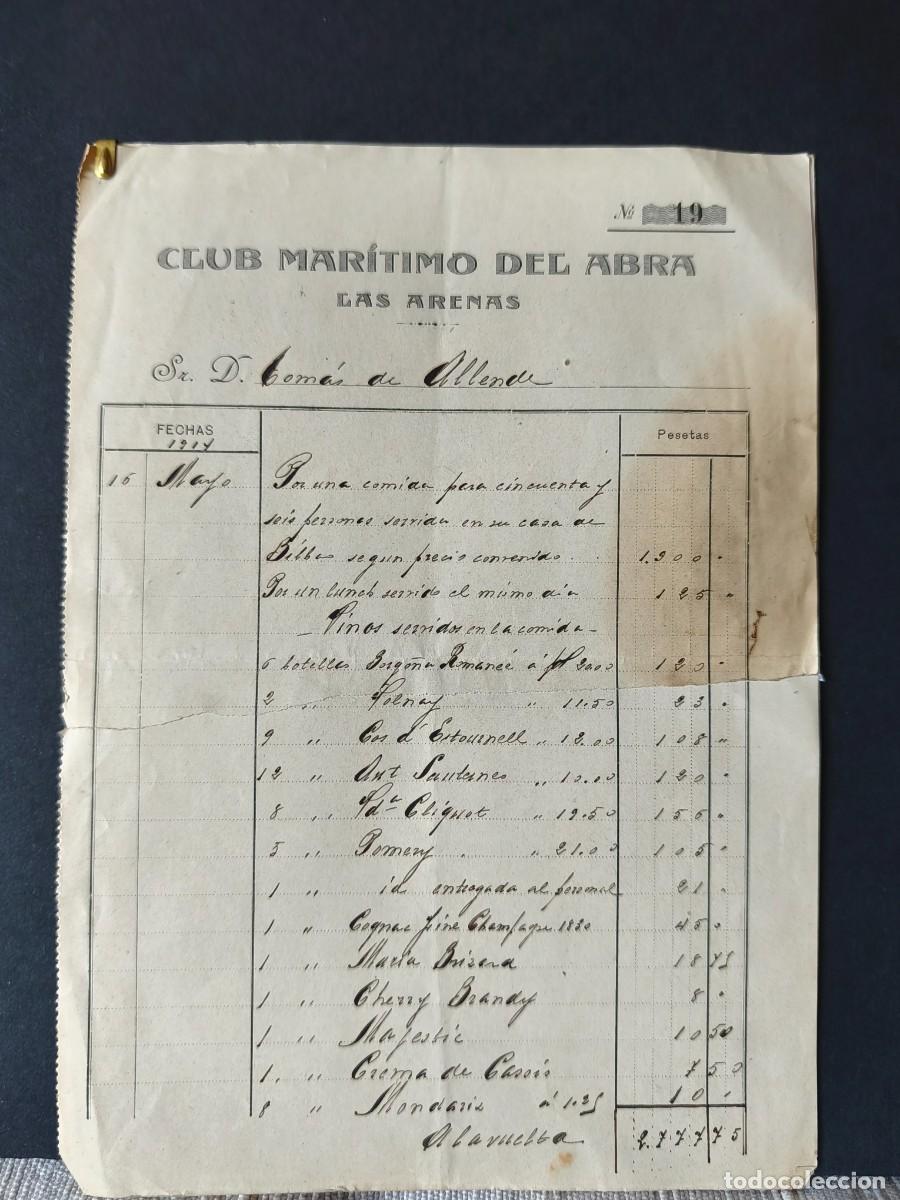 Nº 19
CLUB MARÍTIMO DEL ABRA
LAS ARENAS
Sr. D. Tomás de Allende
FECHAS Pesetas
1917
16 Mayo Por una comida para cincuenta y
seis personas servida en su casa de
Bilbao segun precio convenido. 1.900 "
Por un lunch servido el mismo día 125 "
- Vinos servidos en la comida -
6 botellas Borgoña Romaneé á 20.00 120 "
2 " Volnay " 11.50 23 "
9 " Cos d' Estournell " 12.00 108 "
12 " Sauternes " 10.00 120 "
8 " Vda Cliquot " 19.50 156 "
5 " Pomery " 21.00 105 "
1 " id entregada al personal 21 "
1 " Cognac fine Champagne 1820 45 "
1 " Maria Brizard 18 75
1 " Cherry Brandy 8 "
1 " Majestic 10 50
1 " Crema de Cassis 7 50
8 " Mondariz á 1.25 10 "
A la vuelta 2.777 75
todocoleccion